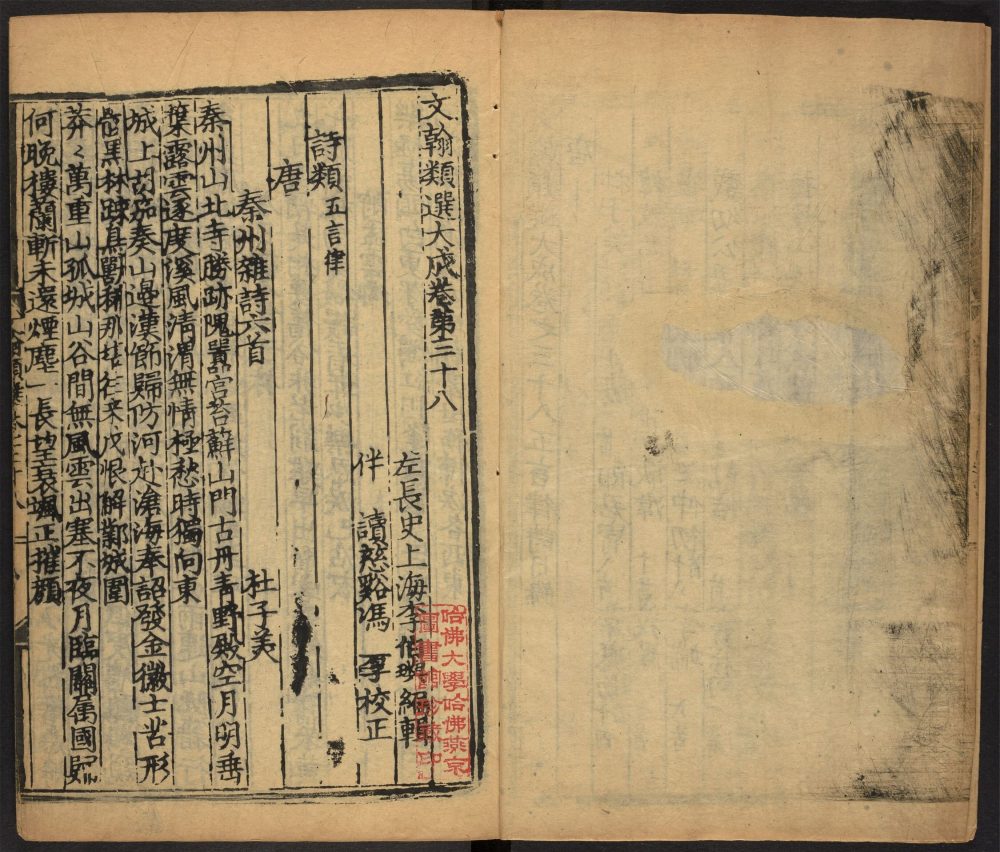 文翰類選大成卷第三十八
左長史上海李伯璵編輯
伴讀慈谿馮厚校正
詩類五言律
唐
秦州雜詩六首 杜子美
秦州山北寺勝跡隗囂宮苔蘚山門古丹青野殿空月明垂
葉露雲逐度溪風清渭無情極愁時獨向東
城上胡笳奏山邉漢節歸防河赴滄海奉詔發金徽士苦形
骸黑林踈鳥獸稀那堪往来戍恨解鄴城圍
莽〻萬重山孤城山谷間無風雲出塞不夜月臨關属國歸
何晚樓蘭斬未還煙塵一長望衰颯正摧顔
哈佛大學哈佛燕京
圖書館珍藏印